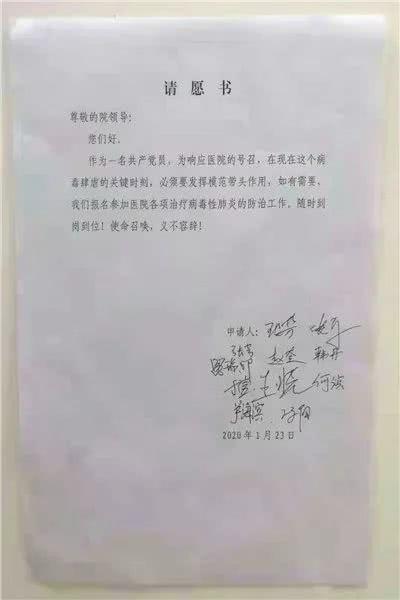 请愿书
尊敬的院领导：
您们好。
作为一名共产党员，为响应医院的号召，在现在这个病
毒肆虐的关键时刻，必须要发挥模范带头作用，如有需要，
我们报名参加医院各项治疗病毒性肺炎的防治工作。随时到
岗到位！使命召唤，义不容辞！
申请人：
赵奎 韩丹
何滨
2020年1月23日